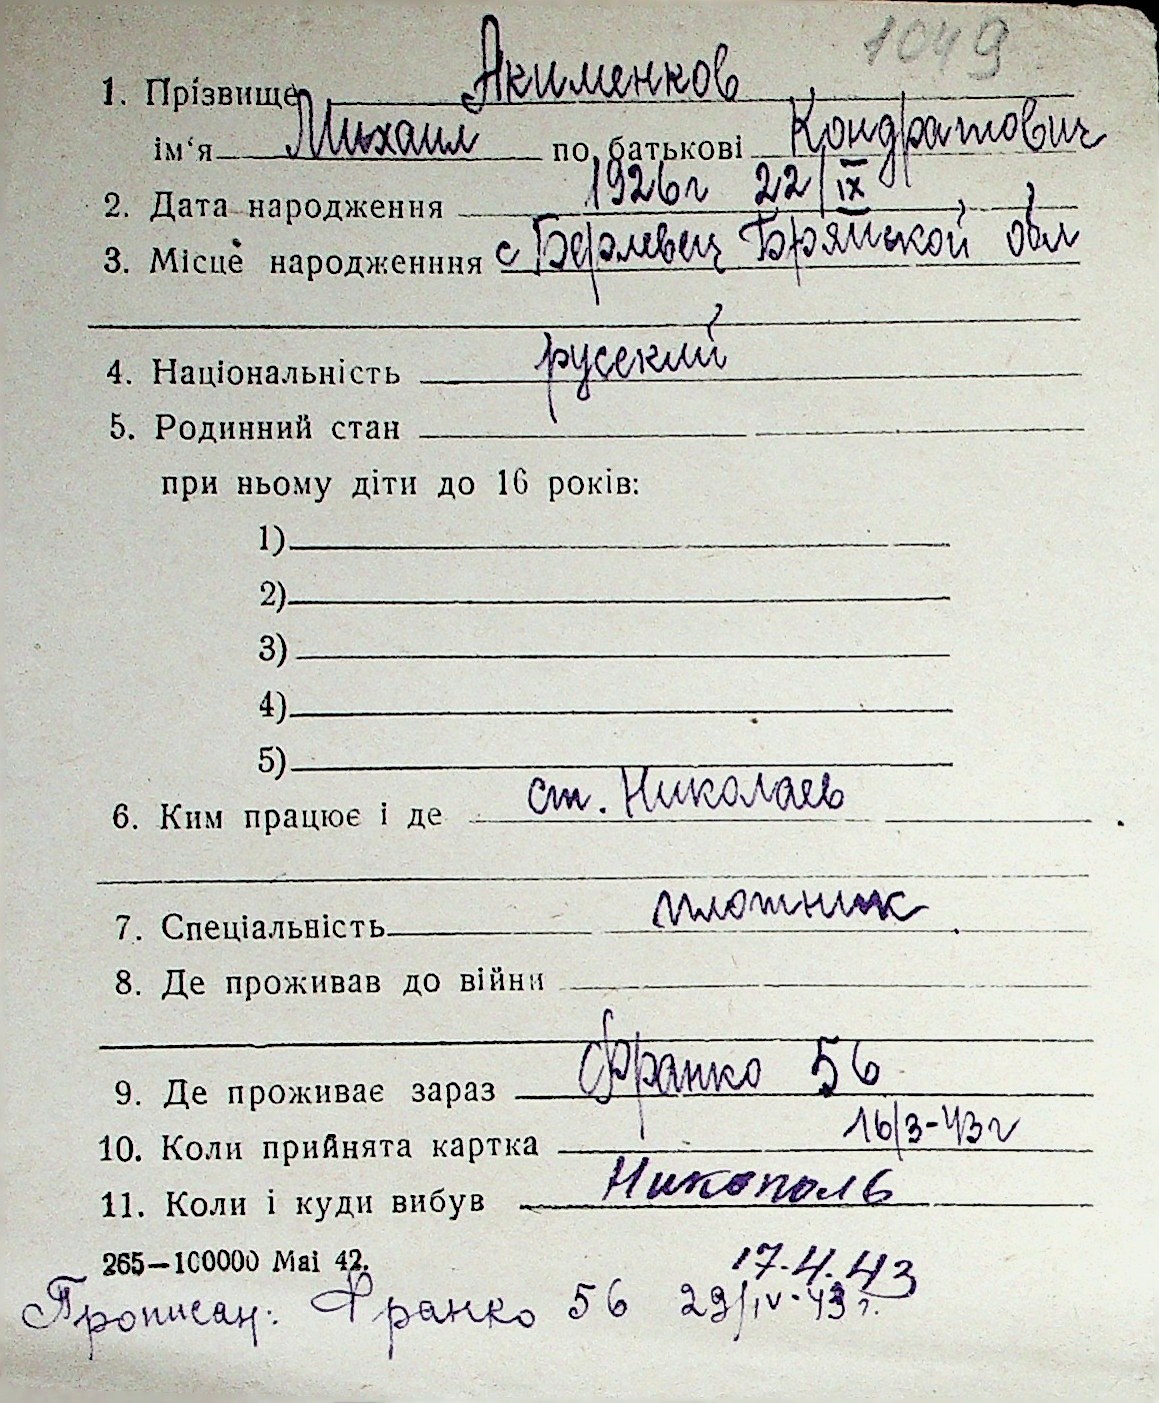 1049
1. Прізвище Акименков
ім'я Михаил по батькові Кондратович
2. Дата народження 1926г 22/IX
3. Місце народженння с Бермвец Брянской обл
4. Національність русский
5. Родинний стан
при ньому діти до 16 років:
1)
2)
3)
4)
5)
6. Ким працює і де ст. Николаев
7. Спеціальність плотник
8. Де проживав до війни
9. Де проживає зараз Франко 56
10. Коли прийнята картка 16/3-43г
11. Коли і куди вибув Никополь
265—100000 Mai 42. 17.4.43
Прописан: Франко 56 29/IV-43г.